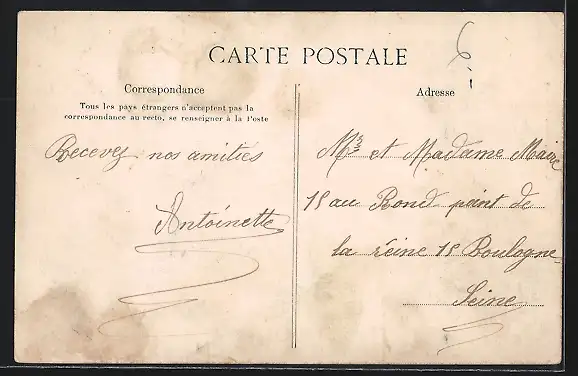 CARTE POSTALE
Correspondance
Tous les pays étrangers n'acceptent pas la
correspondance au recto, se renseigner à la Poste
Recevez nos amitiés
Antoinette
Adresse
Mr et Madame Maire
15 au Rond point de
la reine 15 Boulogne
Seine